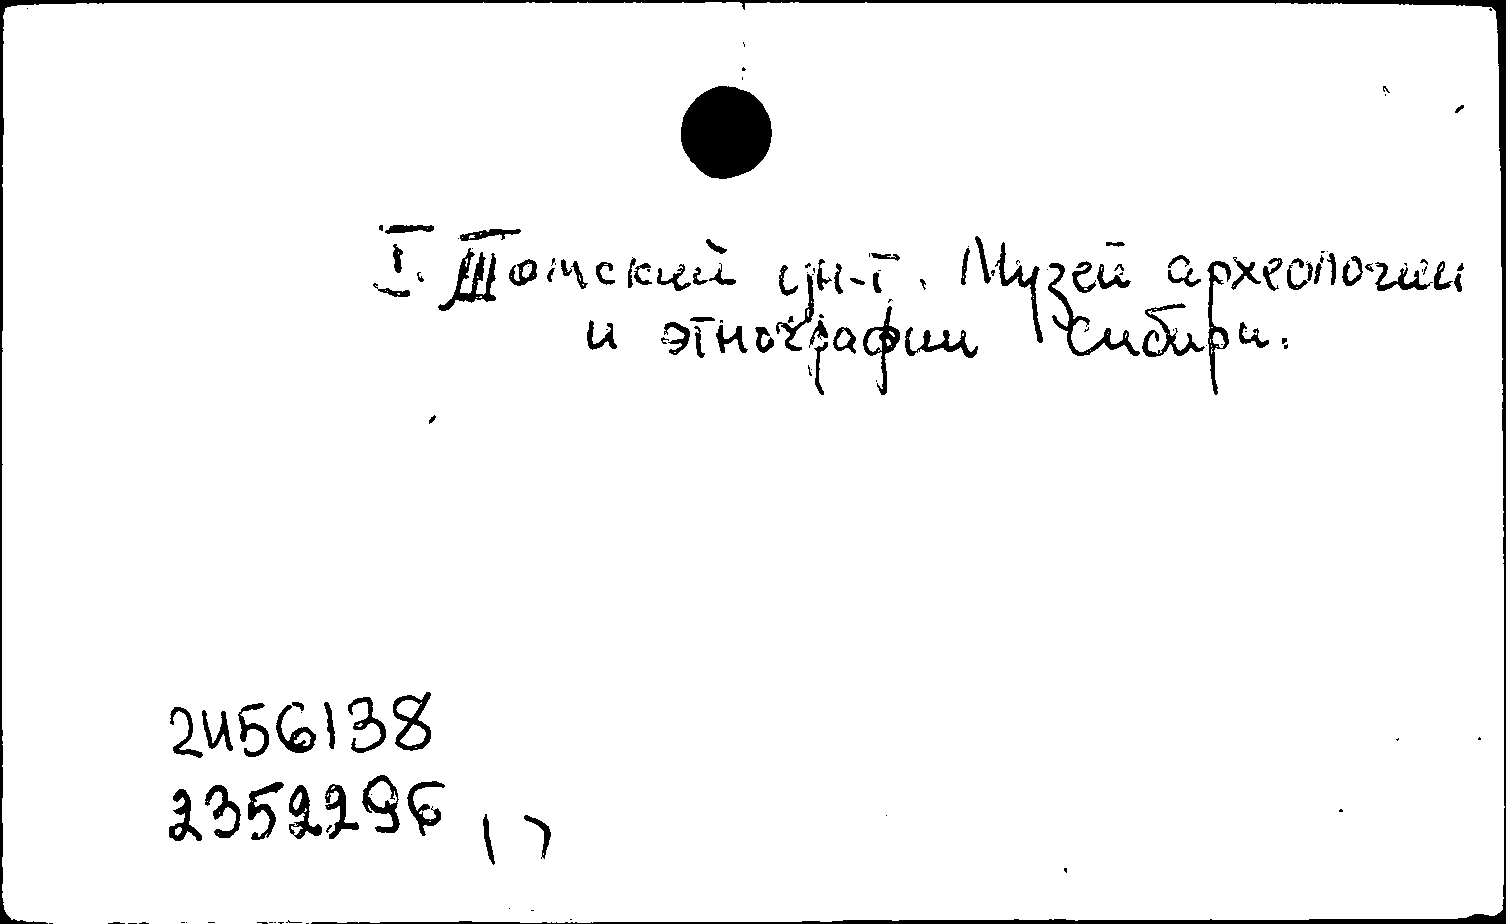 I. Томский ун-т. Музей археологии
и этнографии Сибири.
2456138
2352296